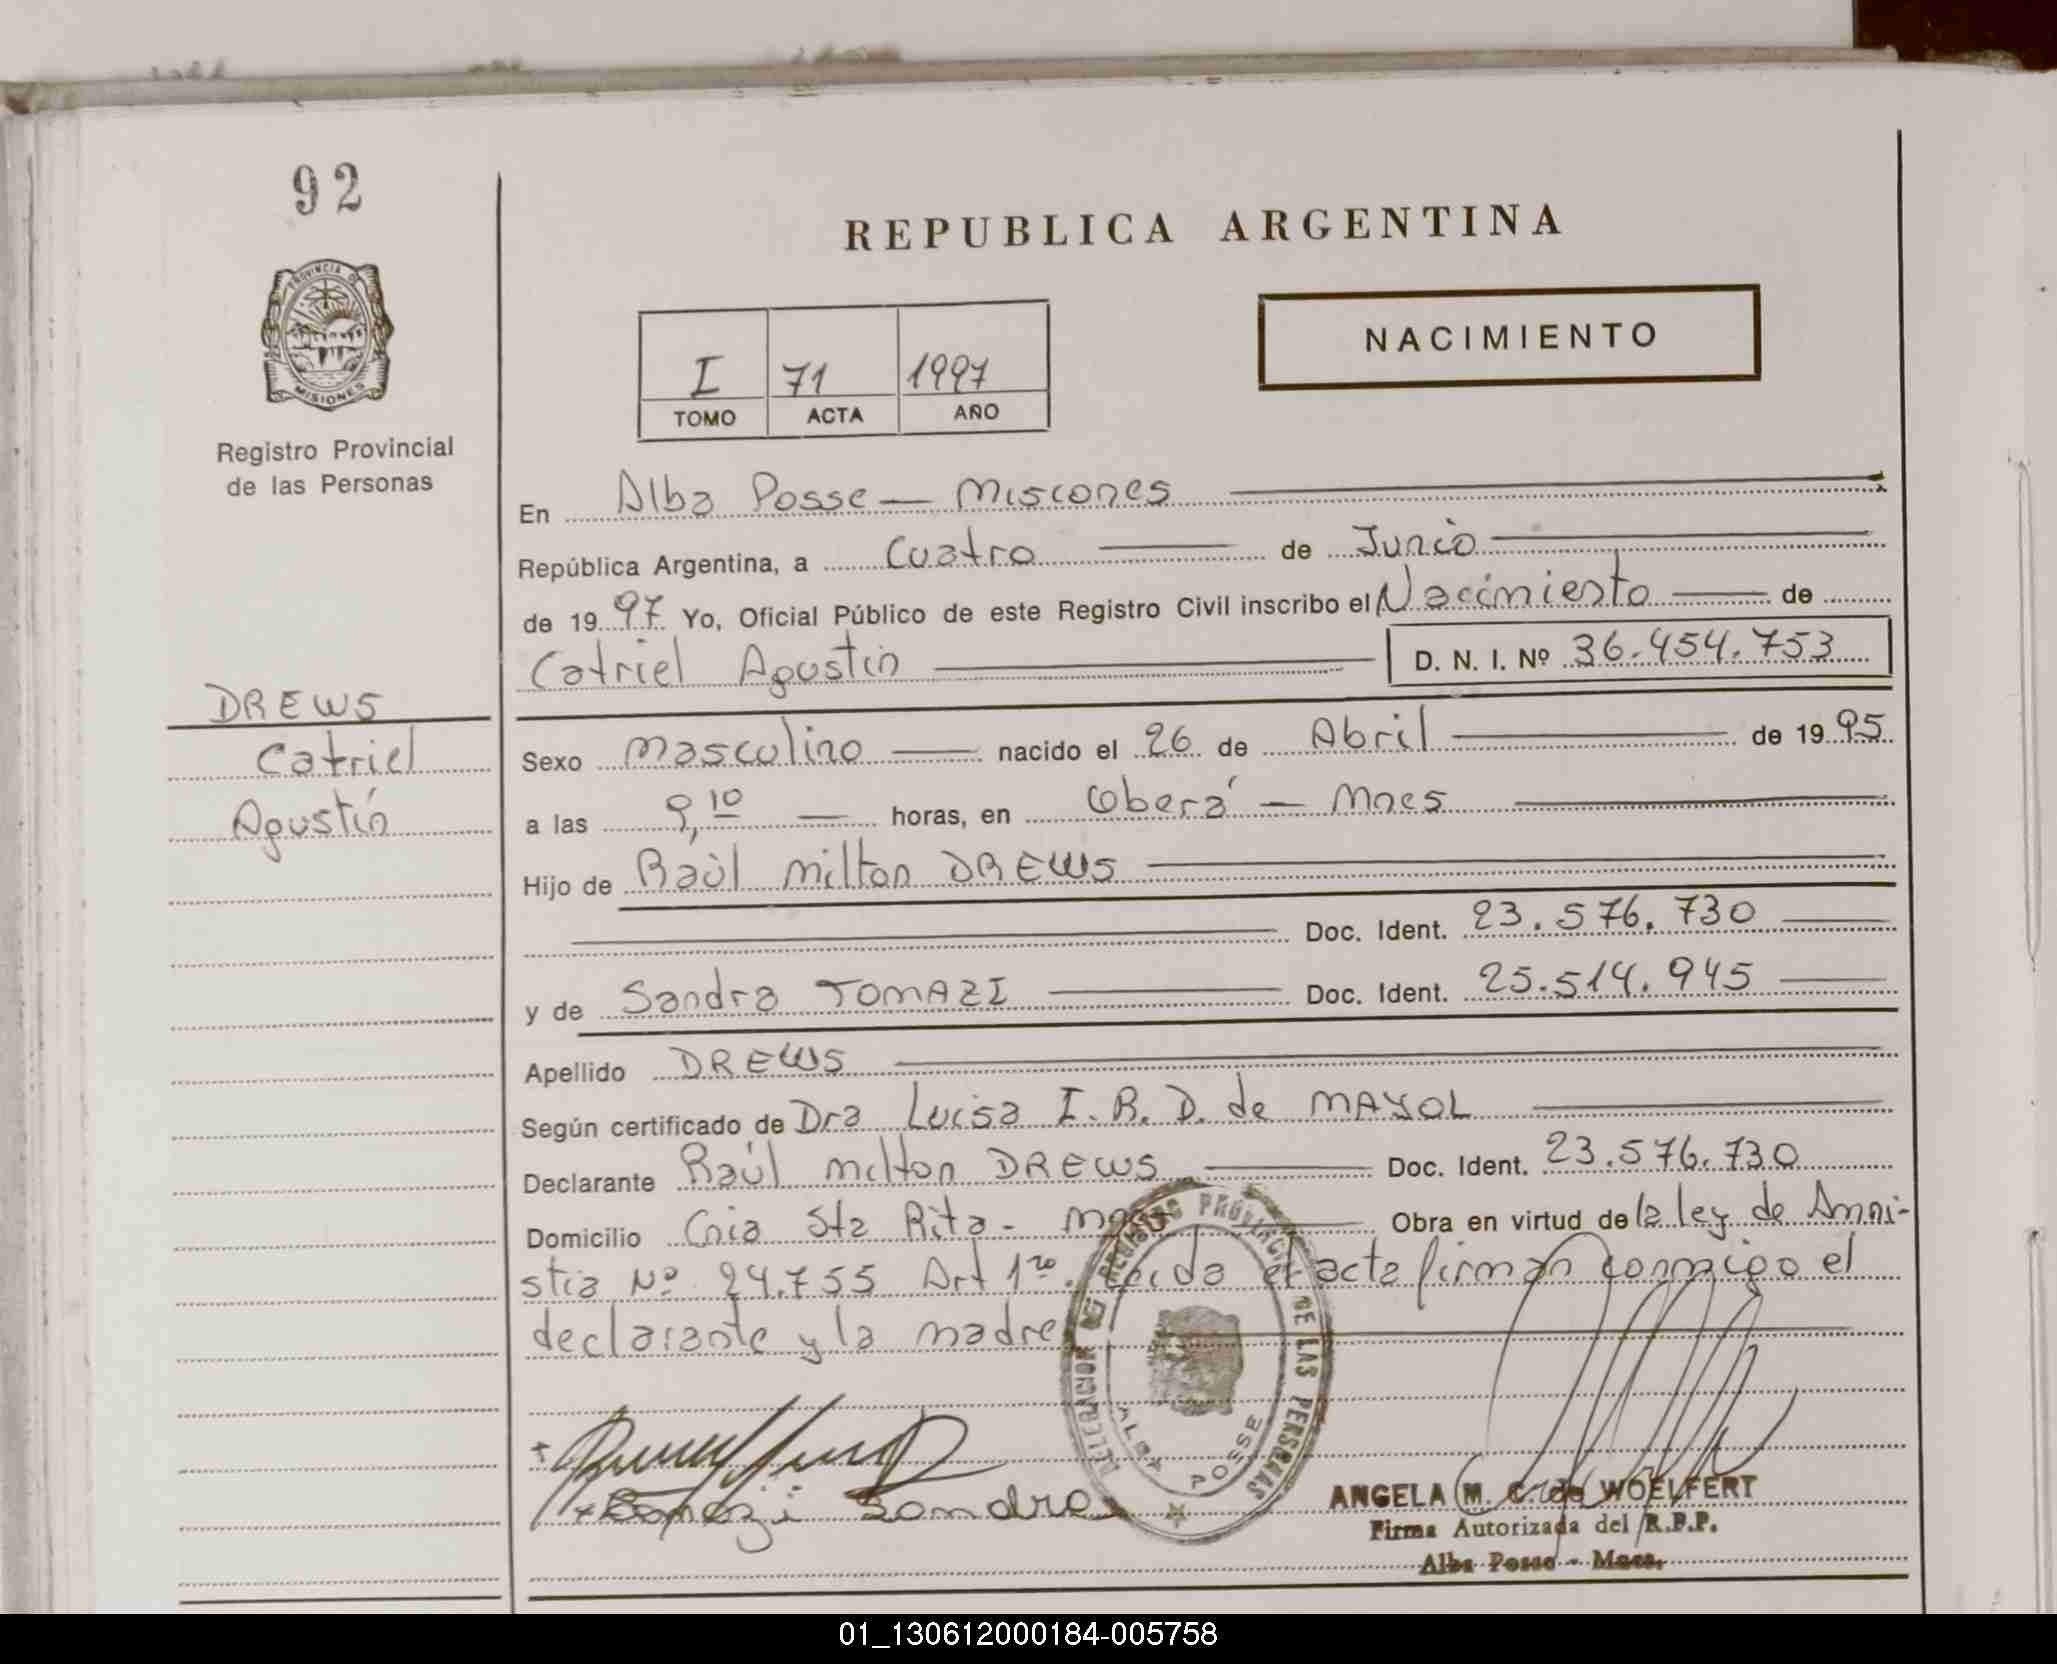 92
REPUBLICA ARGENTINA
PROVINCIA DE
MISIONES
Registro Provincial
de las Personas
I 71 1997
TOMO ACTA AÑO
NACIMIENTO
En Alba Posse — Misiones
República Argentina, a Cuatro de Junio
de 1997 Yo, Oficial Público de este Registro Civil inscribo el Nacimiento de
Catriel Agustín D. N. I. Nº 36.454.753
DREWS
Catriel
Agustín
Sexo masculino nacido el 26 de Abril de 1995
a las 9,10 horas, en Oberá — Mnes
Hijo de Raúl Milton DREWS
Doc. Ident. 23.576.730
y de Sandra TOMAZI Doc. Ident. 25.514.945
Apellido DREWS
Según certificado de Dra Luisa I. R. D. de MAYOL
Declarante Raúl Milton DREWS Doc. Ident. 23.576.730
Domicilio Cnia Sta Rita - Obra en virtud de la ley de Amni-
stia Nº 24.755 Art 1ro. el acta firman conmigo el
declarante y la madre
DELEGACION DEL REGISTRO PROVINCIAL DE LAS PERSONAS
ALBA POSSE
Tomazi Sandra
ANGELA M. C. de WOELFERT
Firma Autorizada del R.P.P.
Alba Posse - Mnes.
01_130612000184-005758